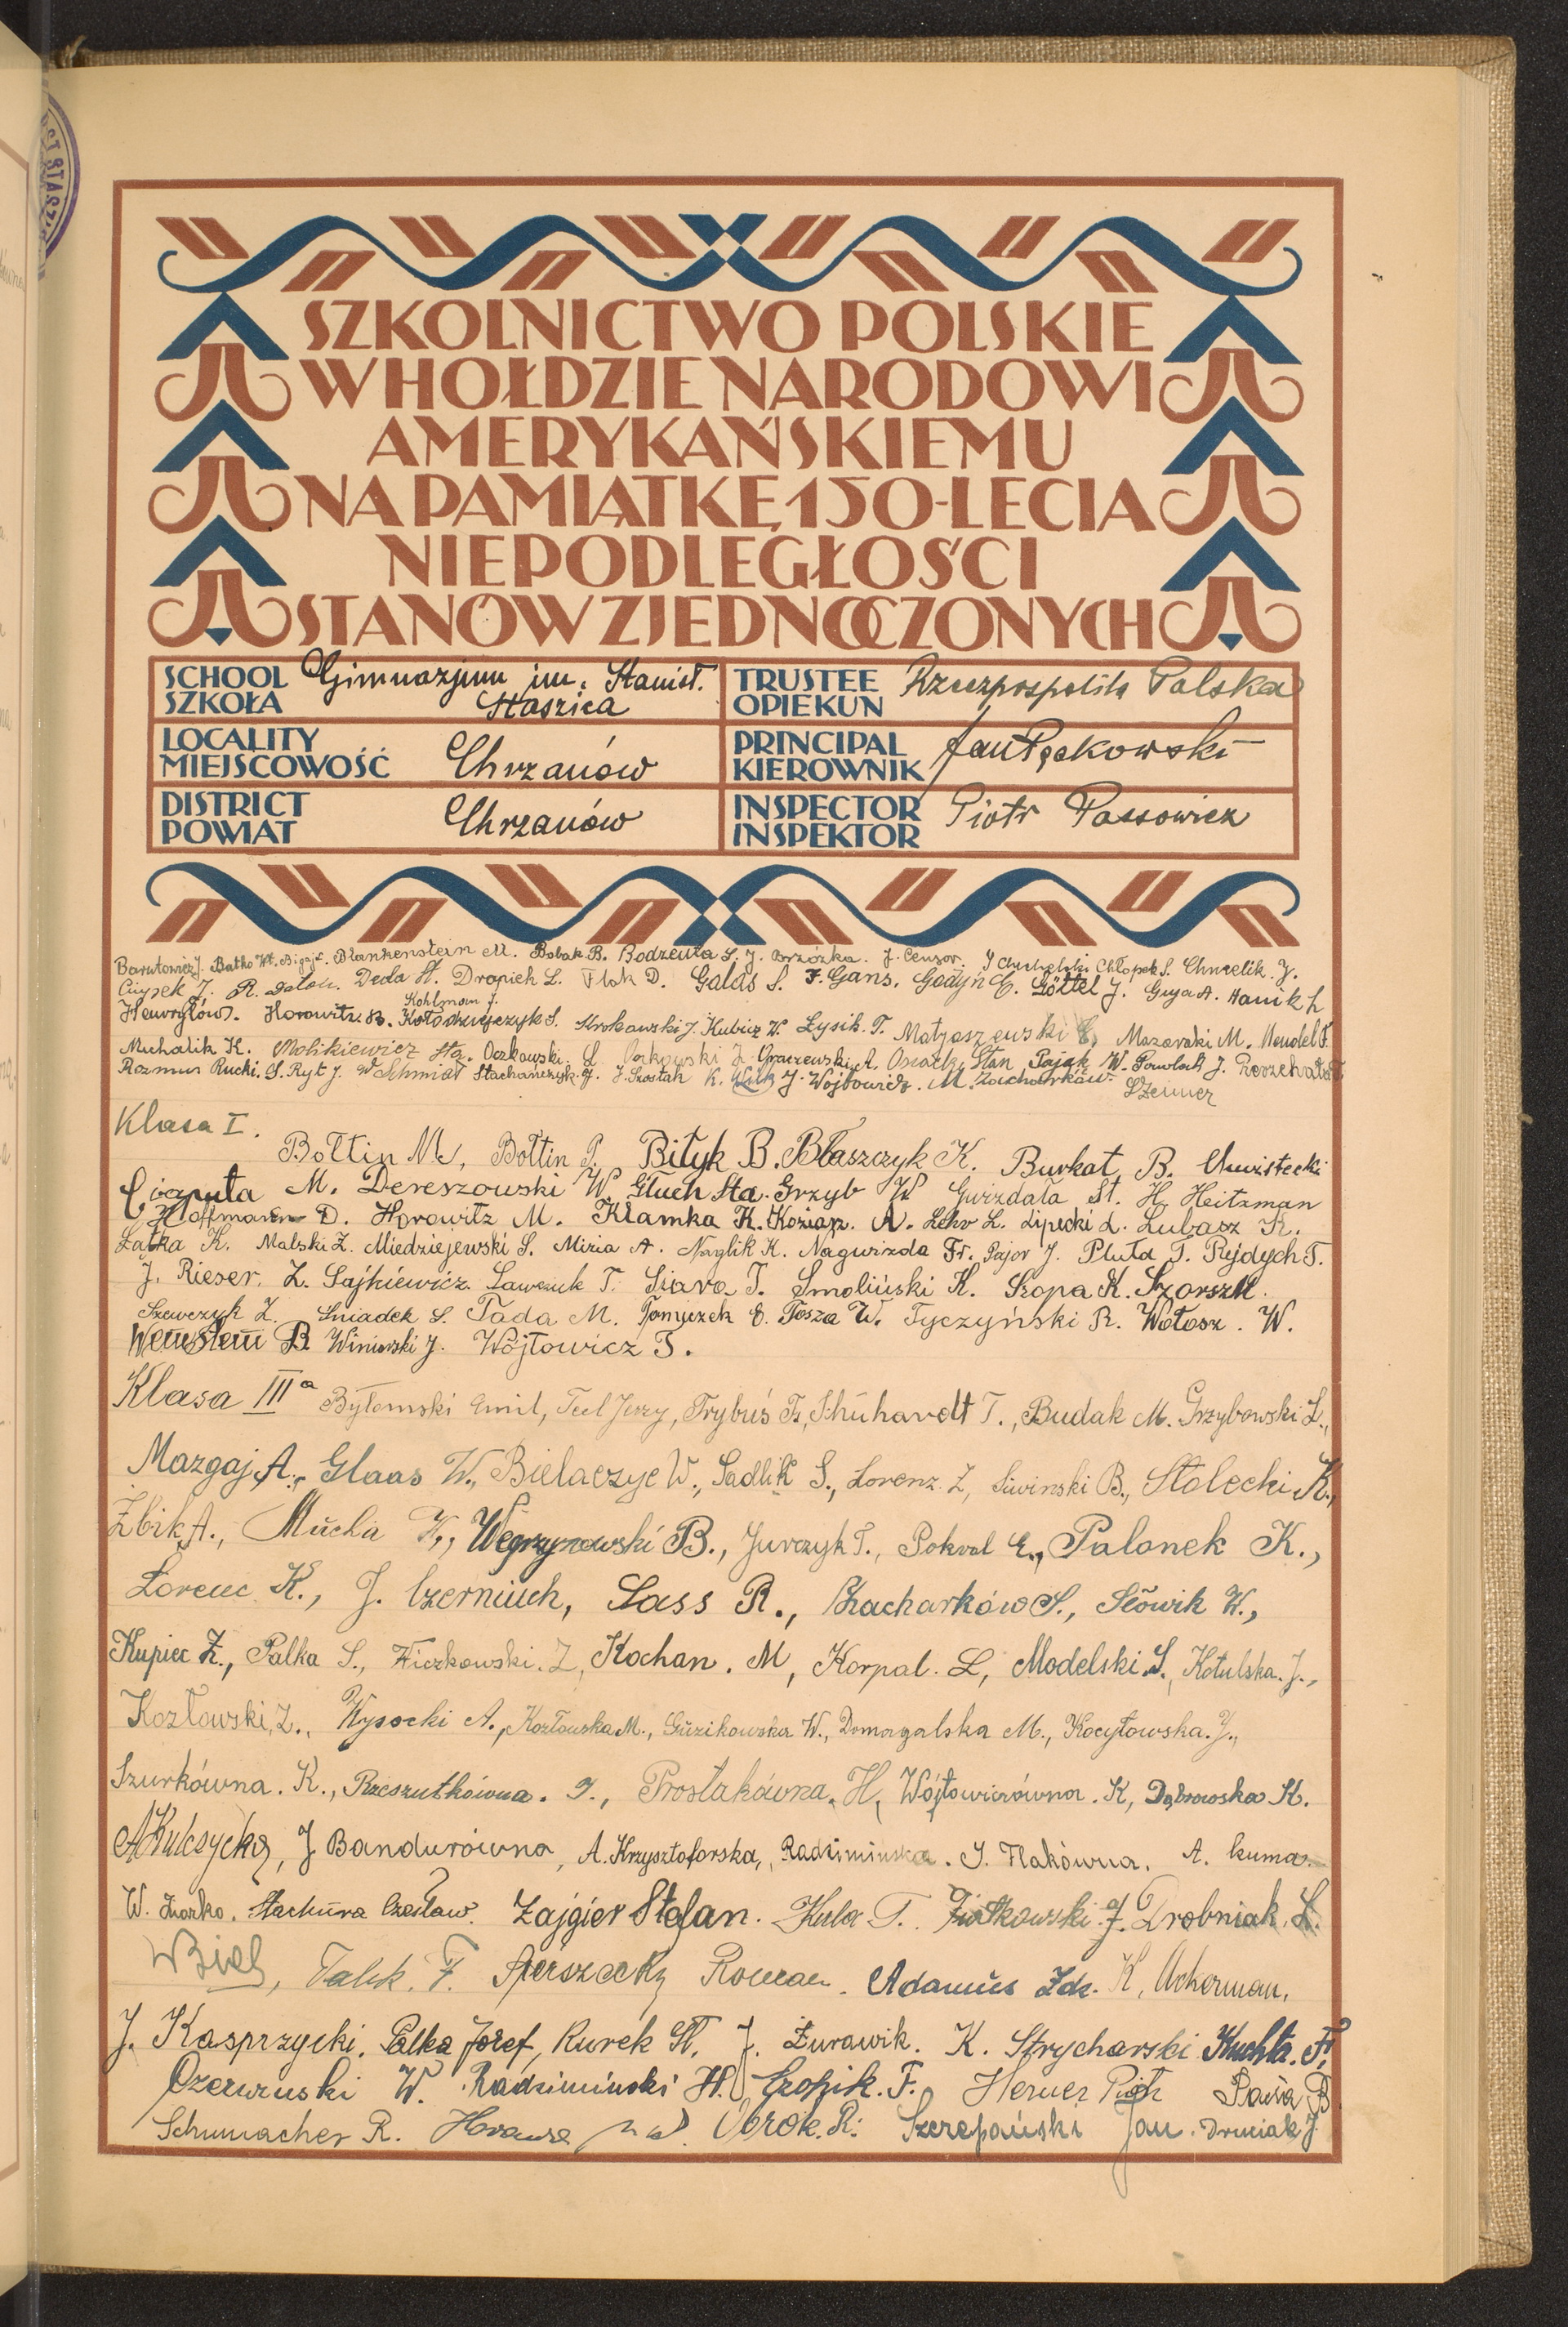 SZKOLNICTWO POLSKIE
W HOŁDZIE NARODOWI
AMERYKAŃSKIEMU
NA PAMIĄTKĘ 150-LECIA
NIEPODLEGŁOŚCI
STANÓW ZJEDNOCZONYCH
SCHOOL SZKOŁA Gimnazjum im. Stanisł. Staszica
TRUSTEE OPIEKUN Rzeczpospolita Polska
LOCALITY MIEJSCOWOŚĆ Chrzanów
PRINCIPAL KIEROWNIK Jan Pęckowski
DISTRICT POWIAT Chrzanów
INSPECTOR INSPEKTOR Piotr Passowicz
Barutowicz J. Batko Wł. Bigaj Blankenstein M. Bobak B. Bodzenta S. J. Brzózka. J. Cenzor. Chłopek S. Chmelik. J.
Ciupek J. R. Deda A. Drapich L. Flak D. Galas S. F. Gans. Godyń E. Göttel J. Guja A. Hanik L
Kohlmann J.
Horowitz B. Kołodziejczyk S. Krokowski J. Kubicz W. Łysik. T. Matyaszewski Mazaraki M. Mendel F.
Michalik K. Molikiewicz Sta. Oczkowski. L. J. Graczewski A. Stan Pająk W. Pawlach J.
Rozmus Rucki. S. Ryt J. W Schmidt Stachańczyk. J. J. Szostak K. J. Wojtowicz. M. Zacharków.
Klasa I.
Bołtin M, Bołtin P. Bityk B. Błaszczyk K. Burkat B.
Ciaputa M. Dereszowski W. Głuch Sta. Grzyb W Gwizdała St. H. Heitzman
Hoffmann D. Horowitz M. Klamka K. Koziarz. A. Lehr L. Lipecki L. Lubasz R.
Łatka K. Malski Z. Miedziejewski S. Mizia A. Naglik K. Nagwizda Fr. Pajor J. Pluta T. Rejdych T.
J. Rieser. Z. Sajkiewicz. Sawczuk T. Siara T. Smoliński K. Skopa K. Szorsz M.
Szewczyk Z. Śniadek S. Tada M. Tomiczek E. Tosza W. Tyczyński R. Wołosz. W.
B. Winiarski J. Wójtowicz T.
Klasa III a Bytomski Emil, Teel Jerzy, Trybuś Fr., Schuhardt T., Budak M. Grzybowski L.,
Mazgaj A., Glaas W., Bielaczyc W., Sadlik S., Lorenz. Z, Siwinski B., Stolecki K.,
Żbik A., Mucha W., Węgrzynowski B., Jurczyk T., Pokral E., Palonek K.,
Lorenc K., J. Czerniuch, Sass R., Zacharków S., Słowik W.,
Kupiec Z., Palka S., Wieżkowski. Z, Kochan. M, Korpal. L, Modelski S., Kotulska. J.,
Kozłowski, Z., Wysocki A., Kozłowska M., Guzikowska W., Domagalska M., Kocyłowska. J.,
Szurkówna. K., Rzeszutkówna. J., Prostakówna. H, Wójtowiczówna. K, Dąbrowska K.
A Kulczycka, J Bandurówna, A. Krzysztoforska, Radzimińska. J. Flakówna. A. Kuma.
W. Żnorko. Stachura Czesław. Zajgier Stefan. Kula T. Fiutkowski. J. Drobniak. L.
W Biel, Talik. F. Roman. Adamus Zdz. K. Ackerman.
J. Kasprzycki. Palka Józef, Kurek St. J. Żurawik. K. Strycharski Kuchta. Fr.
Czerwinski W. Radzimiński H. Cropik. F. Herner Piotr
Schumacher R. Obrok. R. Szczepański Jan. Druciak J.